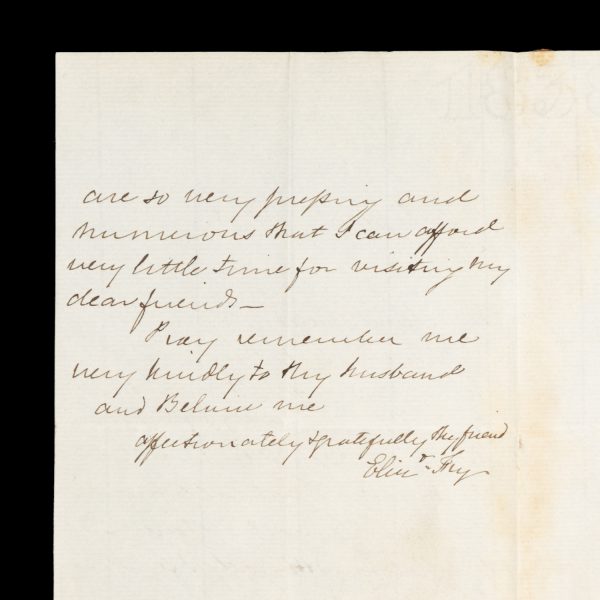 are so very pressing and
numerous that I can afford
very little time for visiting my
dear friends—
Pray remember me
very kindly to thy husband
and Believe me
affectionately & gratefully thy friend
Eliz.th Fry